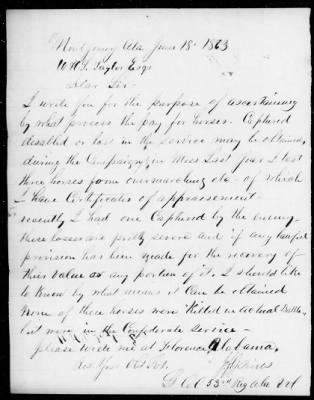 Montgomery Ala June 18th 1863
W.H.S. Taylor Esqr
Dear Sir-
I write you for the purpose of ascertaining
by what process the pay for horses. Captured
disabled or lost in the service may be obtained,
during the Campaign in Miss Last year I lost
three horses from overmarching etc- of which
I have Certificates of appraisement-
recently I had one Captured by the enemy-
these losses are pretty severe and if any lawful
provision has been made for the recovery of
their value or any portion of it. I should like
to know by what means it can be obtained
None of these horses were Killed in actual Battle,
but were in the Confederate service-
please write me at Florence, Alabama.
Res Your Obt Svt.
53rd Reg Ala Vol